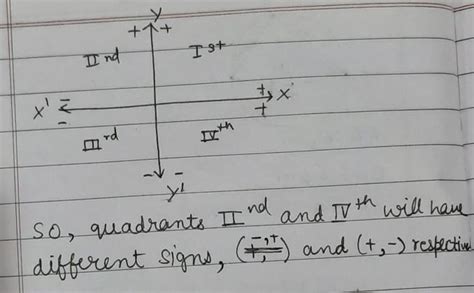 Y
+ +
II nd
I st
X' - -
+ + X
III rd
IV th
- -
Y'
So, quadrants II nd and IV th will have
different signs, (-,+) and (+,-) respective